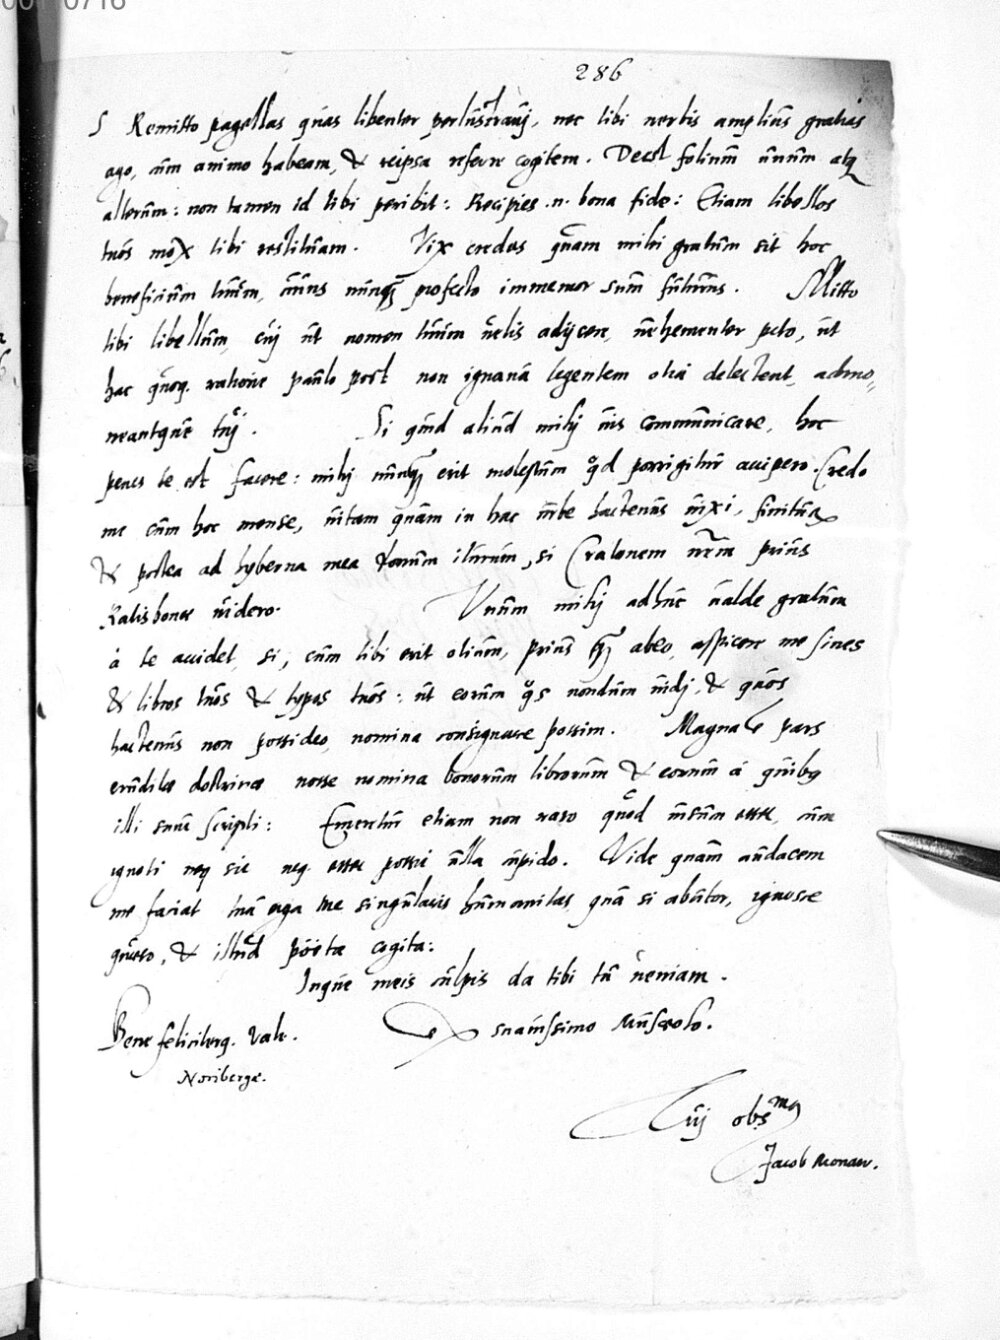 00110716
286
S Remitto pagellas quas libenter perlustravj, nec tibi verbis amplius gratias
ago, cum animo habeam, & reipsa referre cogitem. Deest folium unum atq
alterum: non tamen id tibi peribit: Recipies .n. bona fide: Etiam libellos
tuos mox tibi restituam. Vix credas quam mihi gratum sit hoc
beneficium tuum, cuius nunqz profecto immemor sum futurus. Mitto
tibi libellum, cuj ut nomen tuum uelis adijcere, uehementer peto, ut
hac quoq. ratione paulo post non ignaua legentem otia delectent, admo=
neantque tuj. Si quid aliud mihj uis communicare, hoc
penes te est facere: mihj nunqz erit molestum qd porrigitur accipere. Credo
me cum hoc mense, uitam quam in hac urbe hactenus uixi, finiturum
& postea ad hyberna mea domum iturum, si Cratonem nrm prius
Ratisbonae uidero. Vnum mihj adhuc ualde gratum
à te accidet, si, cum tibi erit otium, prius qz abeo, aspicere me sines
& libros tuos & typos tuos: ut eorum qos nondum uidj, & quos
hactenus non possideo, nomina consignare possim. Magna e pars
eruditae doctrinae nosse nomina bonorum librorum & eorum à quibq
illi sunt scripti: Emerim etiam non raro quod uisum esset, cum
ignoti neq sit neq. esse possit ulla cupido. Vide quam audacem
me faciat tua erga me singularis humanitas, qua si abutor, ignosce
quaeso, & illud poëtae cogita:
Inque meis culpis da tibi tu ueniam.
Bene feliciterq. Vale. suauissimo Musaeolo.
Noribergae.
Tuj obsmq
Jacob Monaw.